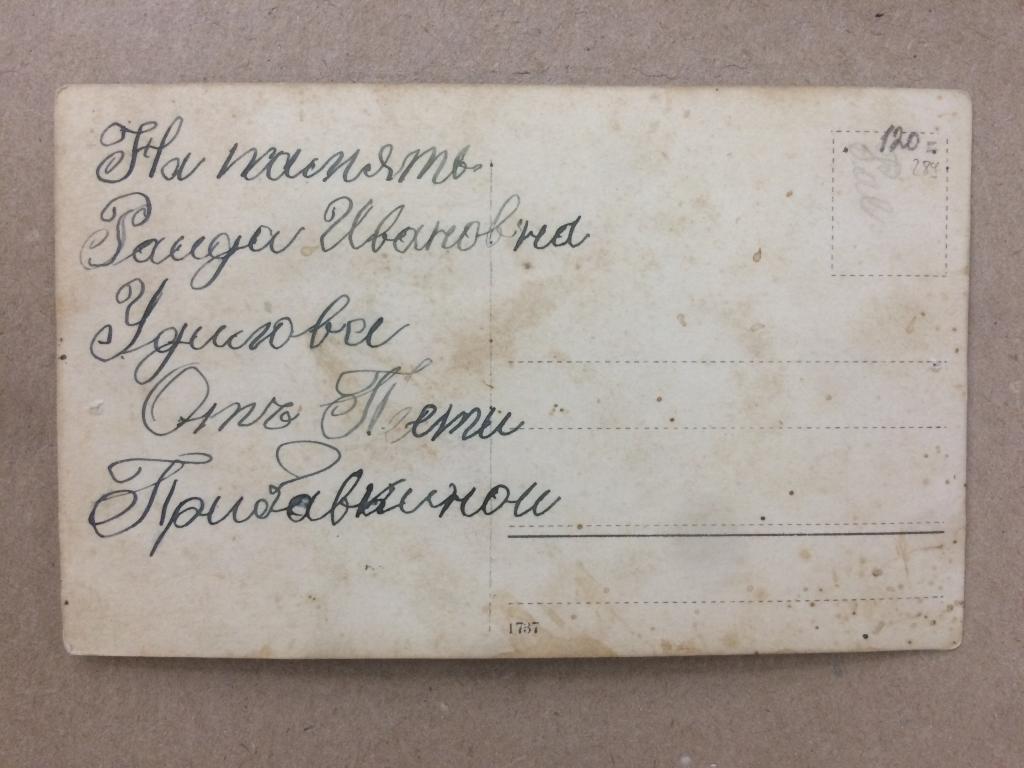 На память
Раида Ивановна
Удилова
Отъ Пети
Прибавкинои
120=
284
1737